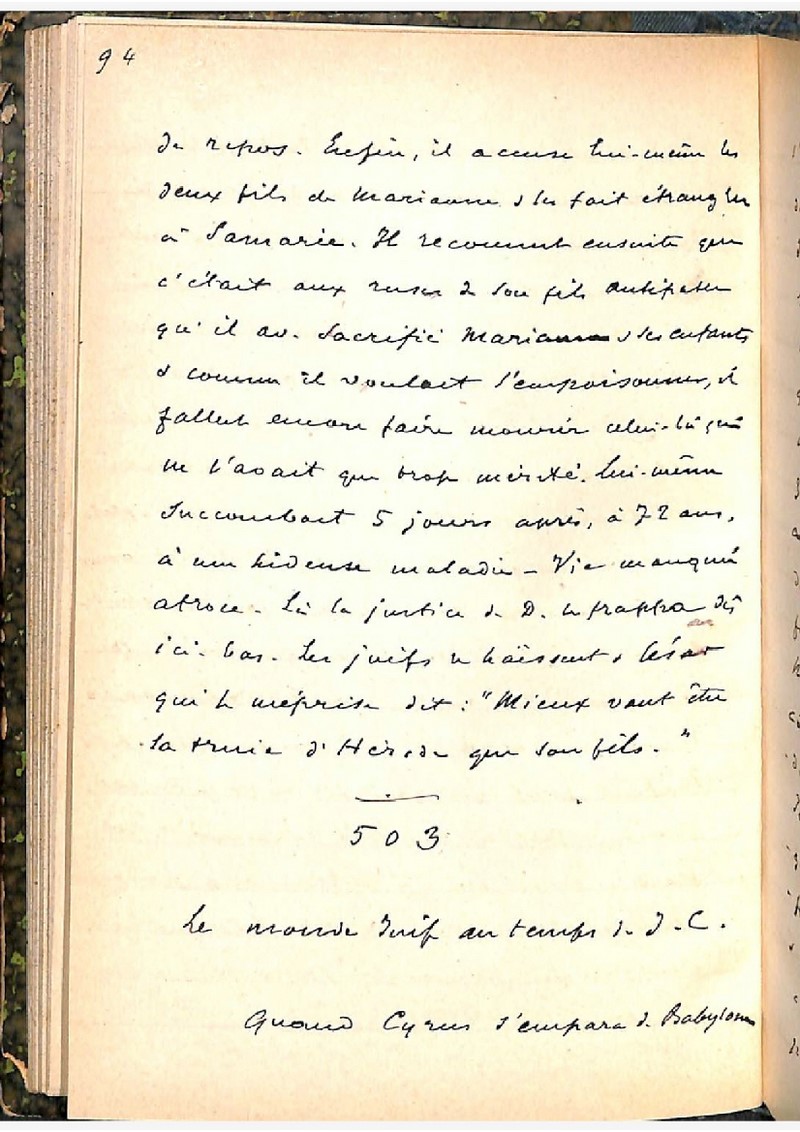 94
de repos. Enfin, il accuse lui-même les
deux fils de Mariamne & les fait étrangler
à Samarie. Il reconnut ensuite que
c'était aux ruses de son fils Antipater
qu'il av. sacrifié Mariamne & ses enfants
& comme il voulait l'empoisonner, il
fallut encore faire mourir celui-là qui
ne l'avait que trop mérité. Lui-même
succombait 5 jours après, à 72 ans,
à une hideuse maladie – Vie manquée
atroce. Là la justice de D. le frappa dès
ici-bas. Les juifs le haïssent & César
qui le méprise dit : "Mieux vaut être
la truie d'Hérode que son fils."
503
Le monde Juif au temps d. J.-C.
Quand Cyrus s'empara d. Babylone